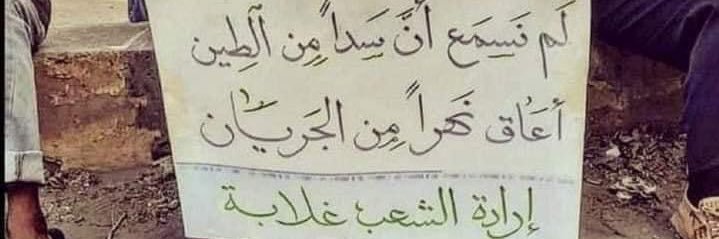 لَم نَسمَع أنَّ سَداً مِن الطِين
أعَاق نَهراً مِن الجَريَان
إرادة الشعب غلابة